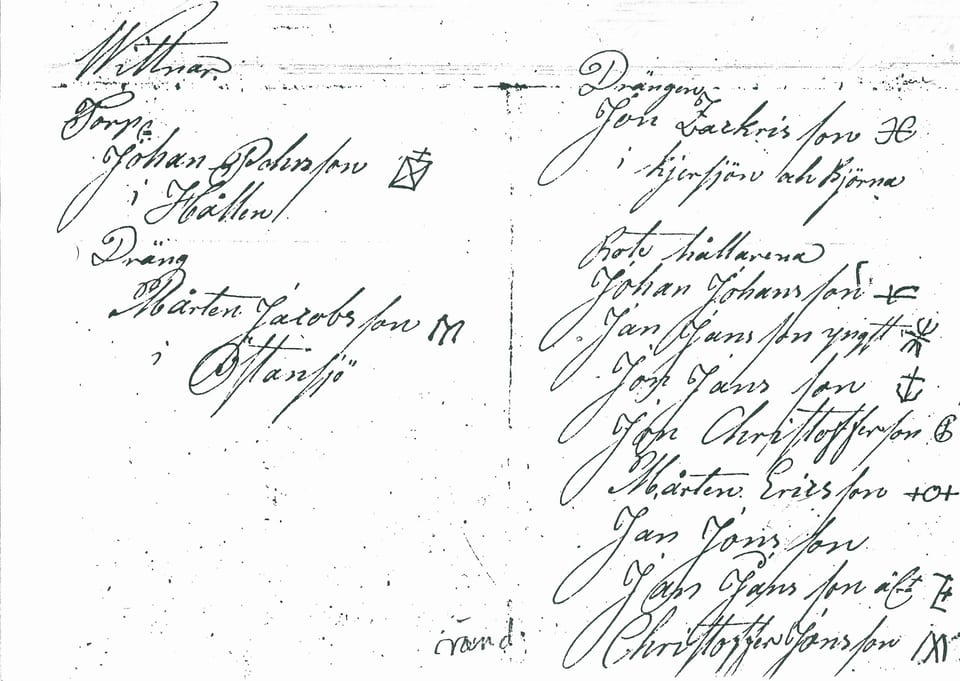 Wittnar
Torp:
Johan Pohnsson
i Hållen
Dräng
Mårten Jacobsson
i
Östansjö
Drängen
Jon Zackrisson
i Kjersjön ah Björna
Rote hållarena
Johan Johansson
Jan Jansson yngst
Jon Jansson
Jon Christoffersson
Mårten Ericsson
Jan Jonsson
Jan Jansson älst
Christoffer Jonsson